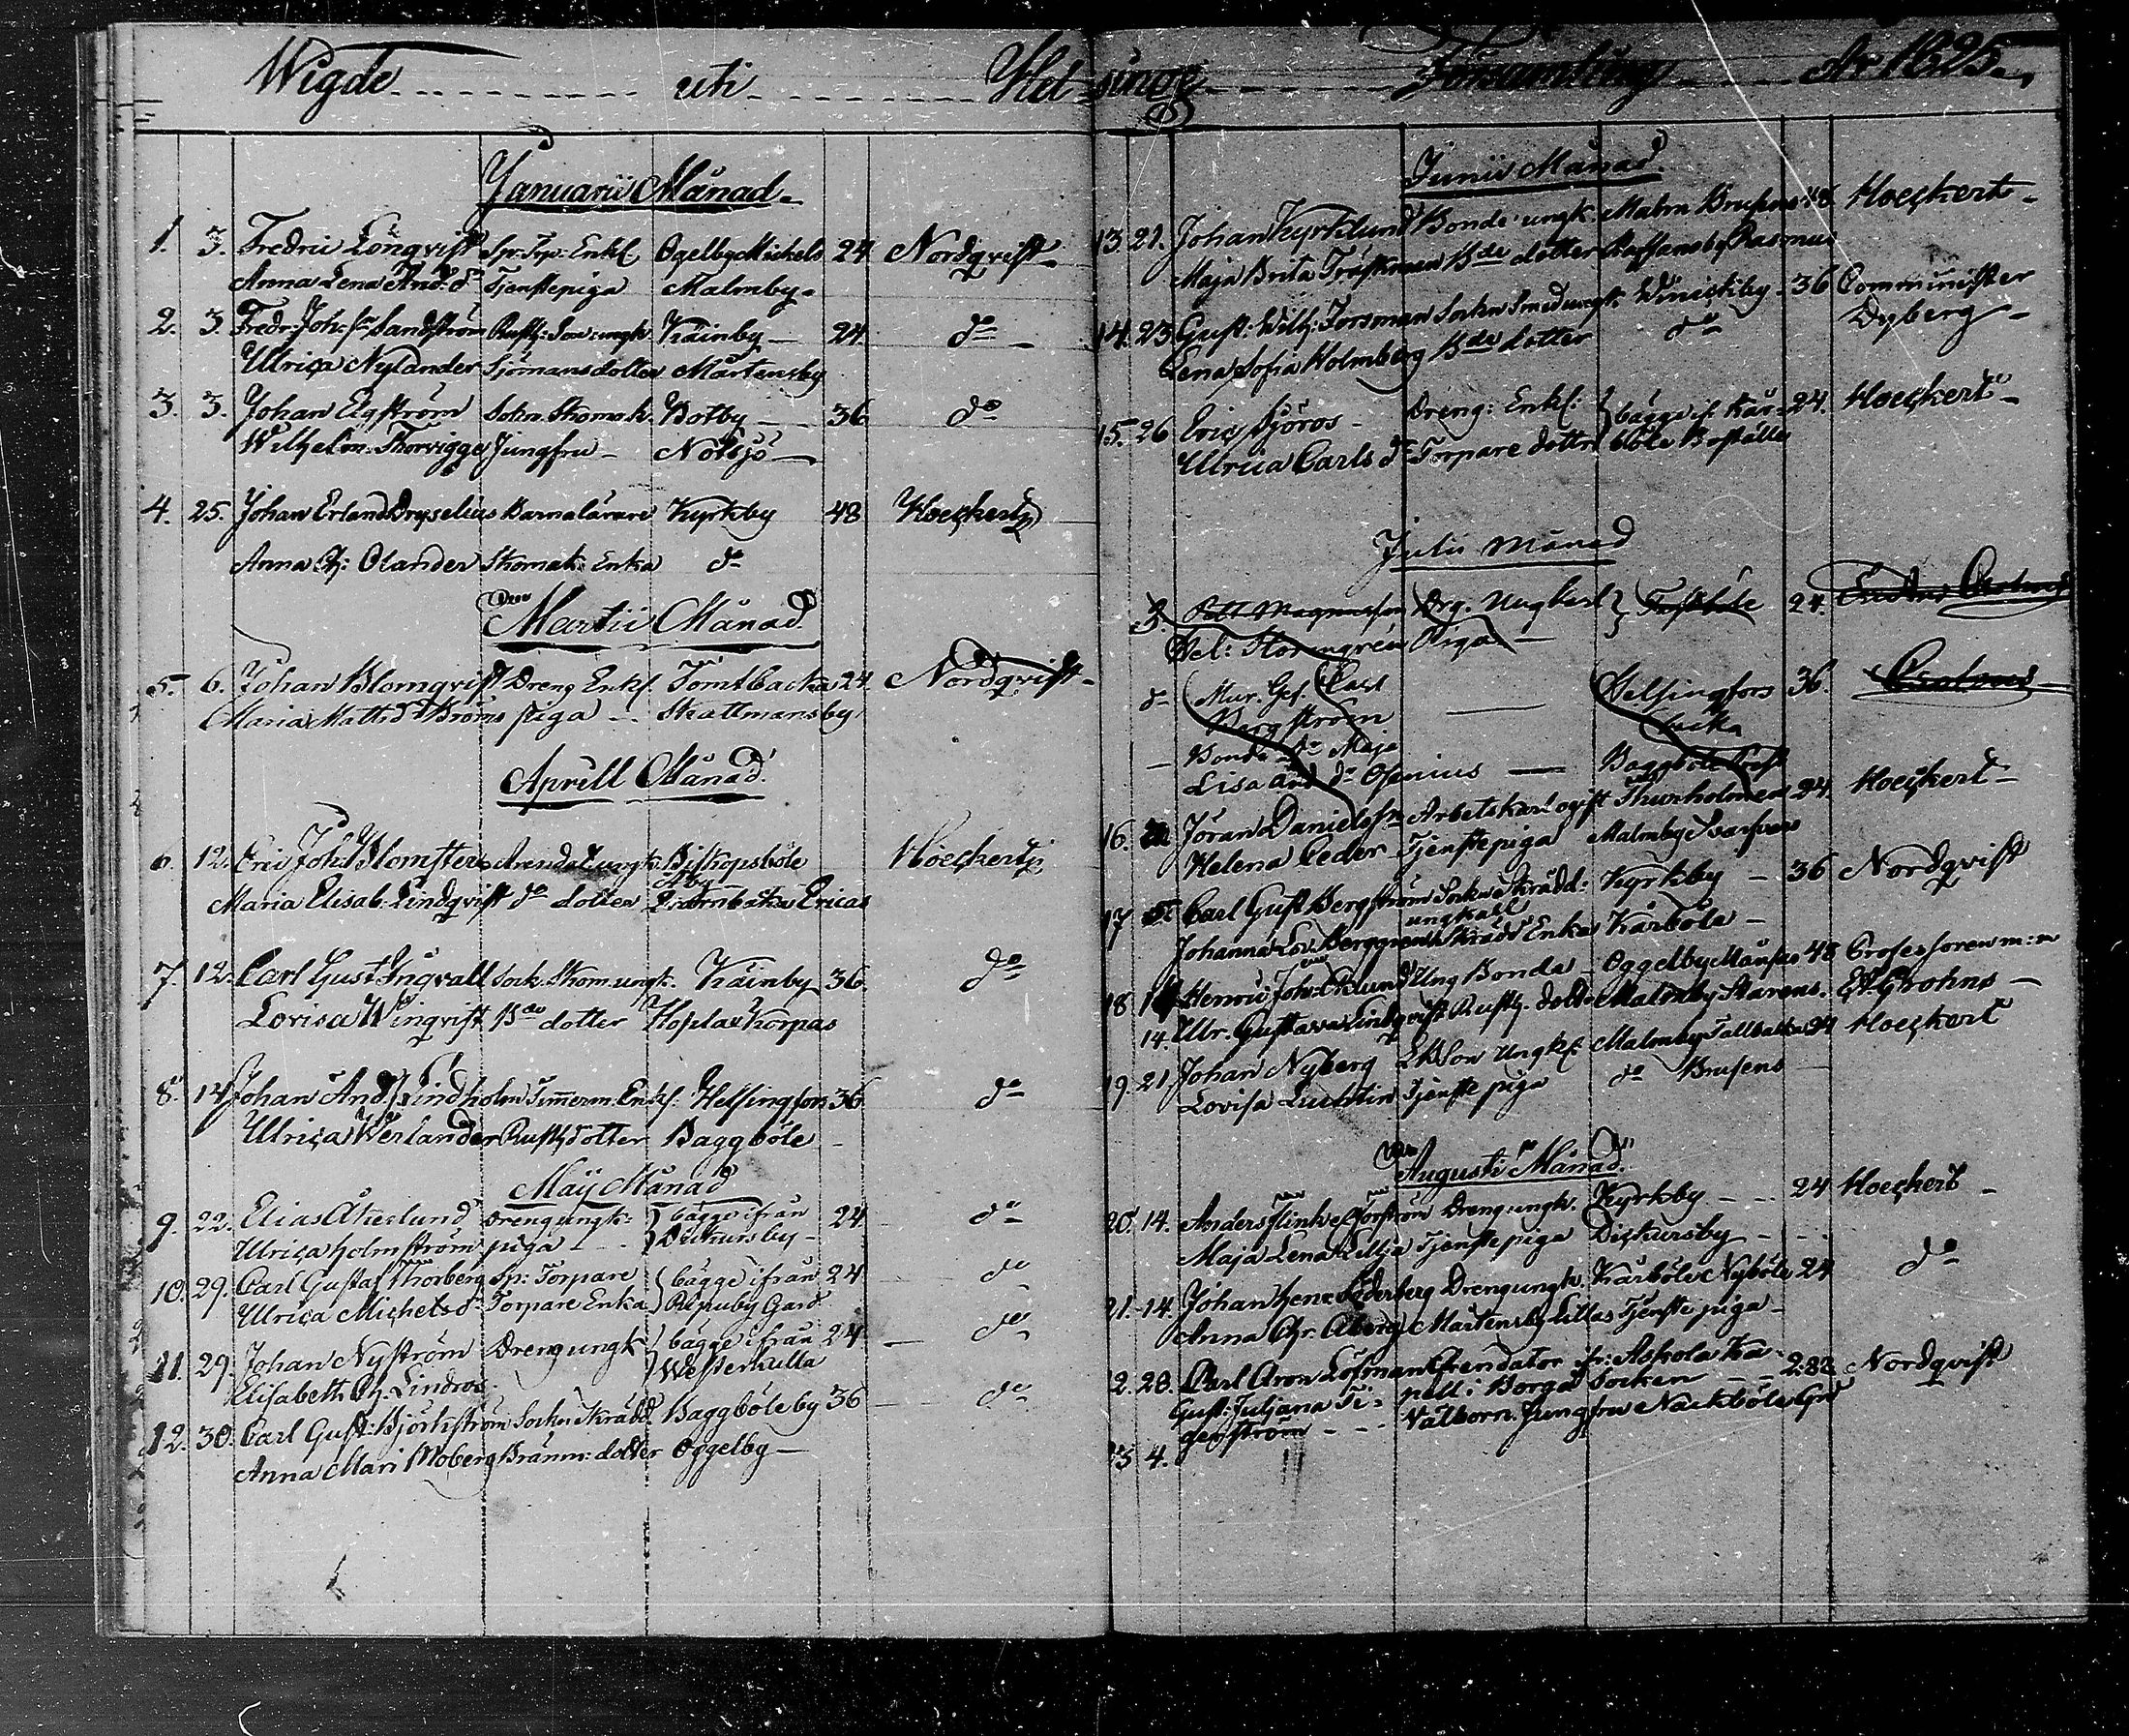 Wigde uti Helsinge Församling År 1825.
Januarii Månad.
1. 3. Fredric Lönqvist Sp: Trp: Enkl. Ogelby Mickels 24 Nordqvist
Anna Lena And: dr Tjenstepiga Malmby
2. 3. Fredr: Joh: sn Sandström Rusth: Son: ungk Käinby 24 do
Ulrica Nylander Sjömansdotter Mårtensby
3. 3. Johan Elgström Sokn. Skomak. Botby 36 do
Wilhelm. Thorvigge Jungfru Nötsjö
4. 25. Johan Erland Dryselius Barnalärare Kyrkby 48 Hoeckert
Anna Ch: Olander Skomak: Enka do
Martii Månad
5. 6. Johan Blomqvist Dreng Enkl. Tomtbacka 24 Nordqvist
Maria Matts dr Broms piga Skattmansby
Aprill Månad
6. 12. Eric Joh: Blomster Arendat. ungk. Biskopsböle Hoeckert
Maria Elisab. Lindqvist do dotter Ericas
7. 12. Carl Gust Ingvall Sock. Skom. ungk. Käinby 36 do
Lovisa Wingvist Bde dotter Hoplax Korpas
8. 14 Johan And: Lindholm Timmerm. Enkl. Helsingfors 36 do
Ulrica Werlander Rusth dotter Baggböle
Maij Månad
9. 22. Elias Åkerlund Dreng ungk: bägge ifrån 24 do
Ulrica Holmström piga Dickursby
10. 29. Carl Gustaf Thorberg Sp: Torpare bägge ifrån 24 do
Ulrica Michels dr Torpare Enka Repuby Gård
11. 29. Johan Nyström Dreng ungk bägge ifrån 24 do
Elisabeth Ch: Lindros Westerkulla
12. 30. Carl Gust: Björkström Sockn Skrädd. Baggböle by 36 do
Anna Mari Moberg Brännm: dotter Oggelby
Junii Månad
13 21. Johan Kyrklund Bonde ungk. Malm Brusens 48 Hoeckert
Maja Brita Träskman Bde dotter Rasmus
14. 23 Gust: Wilh: Forsman Sockn Smed ungk. Winickby 36 Comminister
Lena Sofia Holmberg Bde dotter do Dyberg
15. 26 Eric Sjöros Dreng: Enkl: bägge if. Kår- 24. Hoeckert
Ulrica Carls dr Torpare dotter böle Boställe
Julii Månad
3. Magnusson Drg. Ungkarl 24.
Hel: Storengrén Piga
do Mur. Ges. Carl Helsingfors 36.
Bergström
Bonde dr Maja
Lisa And dr Osenius Baggböle
16. Jöran Danielss: Arbetskarl ogift Thurholmen 24 Hoeckert
Helena Ceder Tjenstepiga Malmby Svarfvars
17 Carl Gust Bergström Sockn Skrädd: Kyrkby 36 Nordqvist
ungkarl
Johanna Lov. Berggren Skrädd Enka Kårböle
18 14 Henric Joh: Eklund Ung Bonde Oggelby Månsas 48 Professoren m: m
14. Ulr. Gustava Lindqvist Rusth. dotter Malmby Starens. Et. Grohns
19. 21 Johan Nyberg Son Ungkl: Malmby Tallbacka 24 Hoeckert
Lovisa Luchtin Tjenstepiga do Brusens
Augusti Månad.
20. 14. Anders Flink el Forström Dreng ungk. Kyrkby 24 Hoeckert
Maja Lena Lillja Tjenstepiga Dickursby
21. 14. Johan Henr Söderberg Dreng ungk. Kårböle Nyböle 24 do
Anna Chr. Åberg Mårtensby Lillas Tjenste piga
2. 28. Carl Aron Löfman Arendator fr: Askola Ka- 2.82 Nordqvist
Gust: Juliana Ti- pell i Borgå Socken
gerström Välborn. Jungfru Nackböle Grd
23 4.